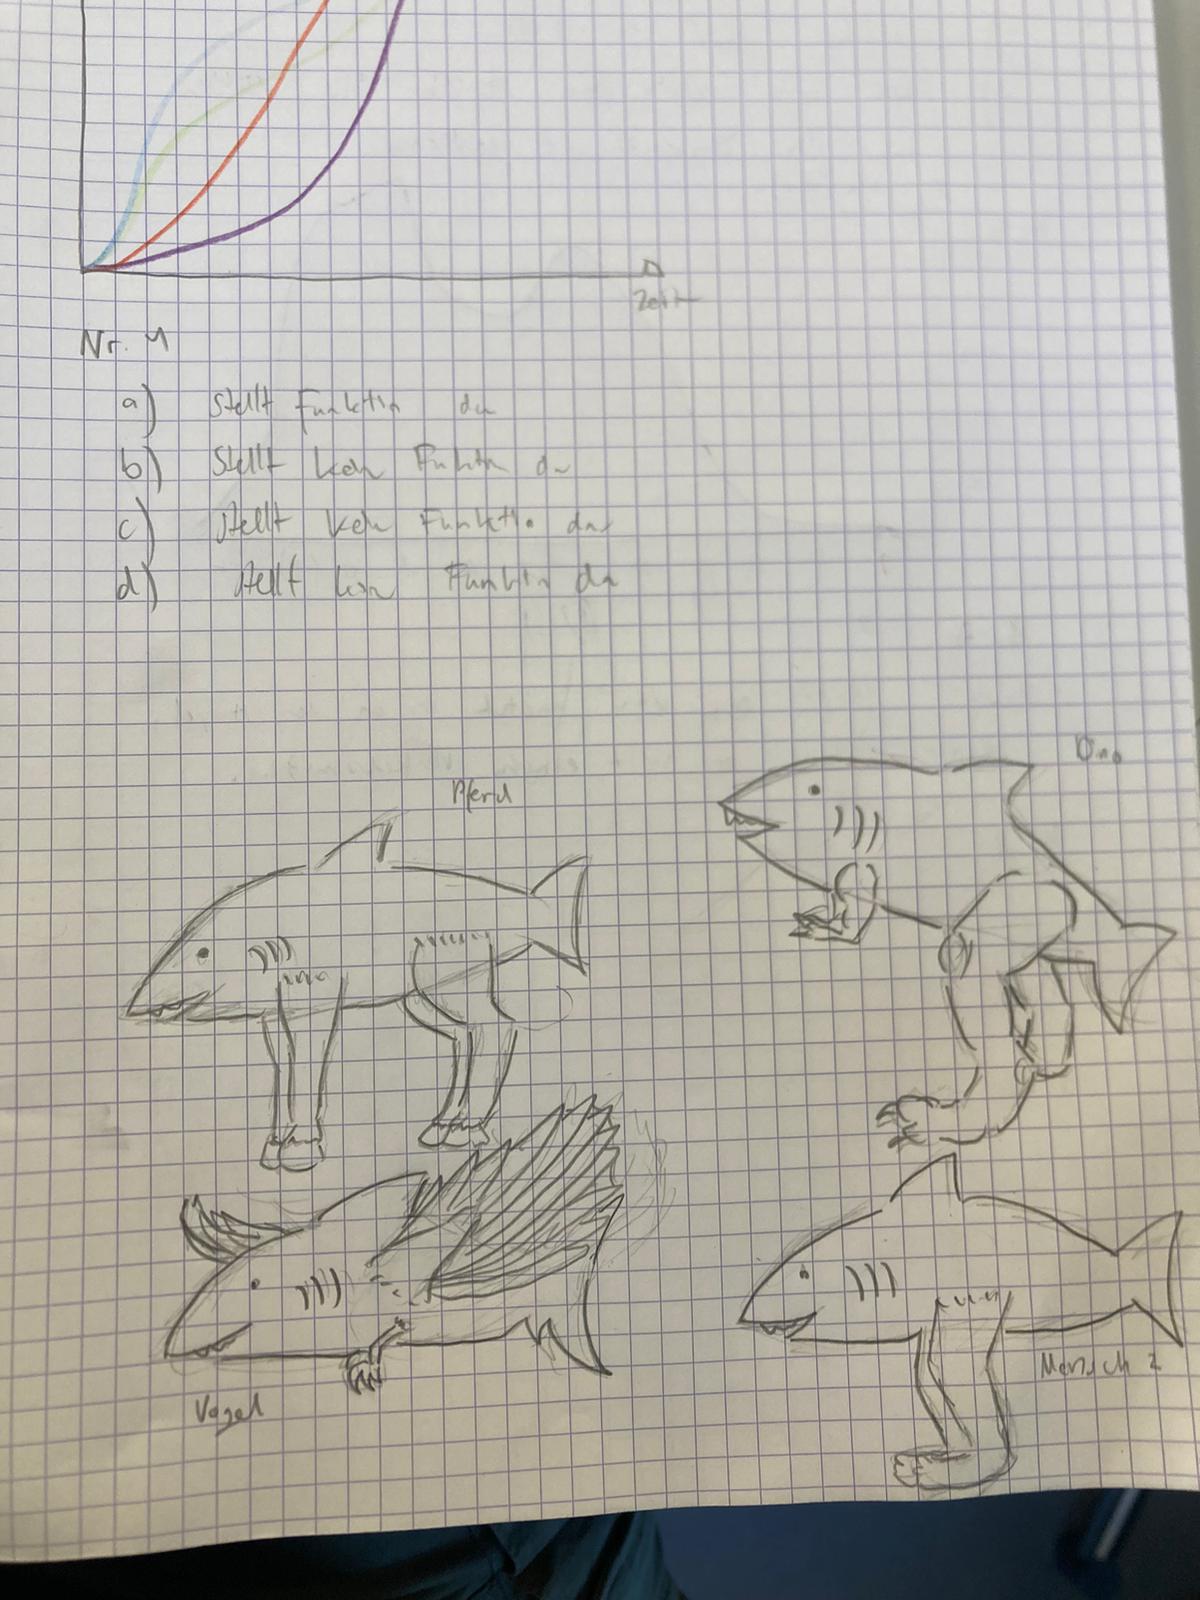 Zeit
Nr. 4
a) stellt Funktin da
b) Stellt ken Funktin da
c) stellt kein Funktio dar
d) stellt kein Funktin da
Dino
Pferd
Vogel
Mensch 2